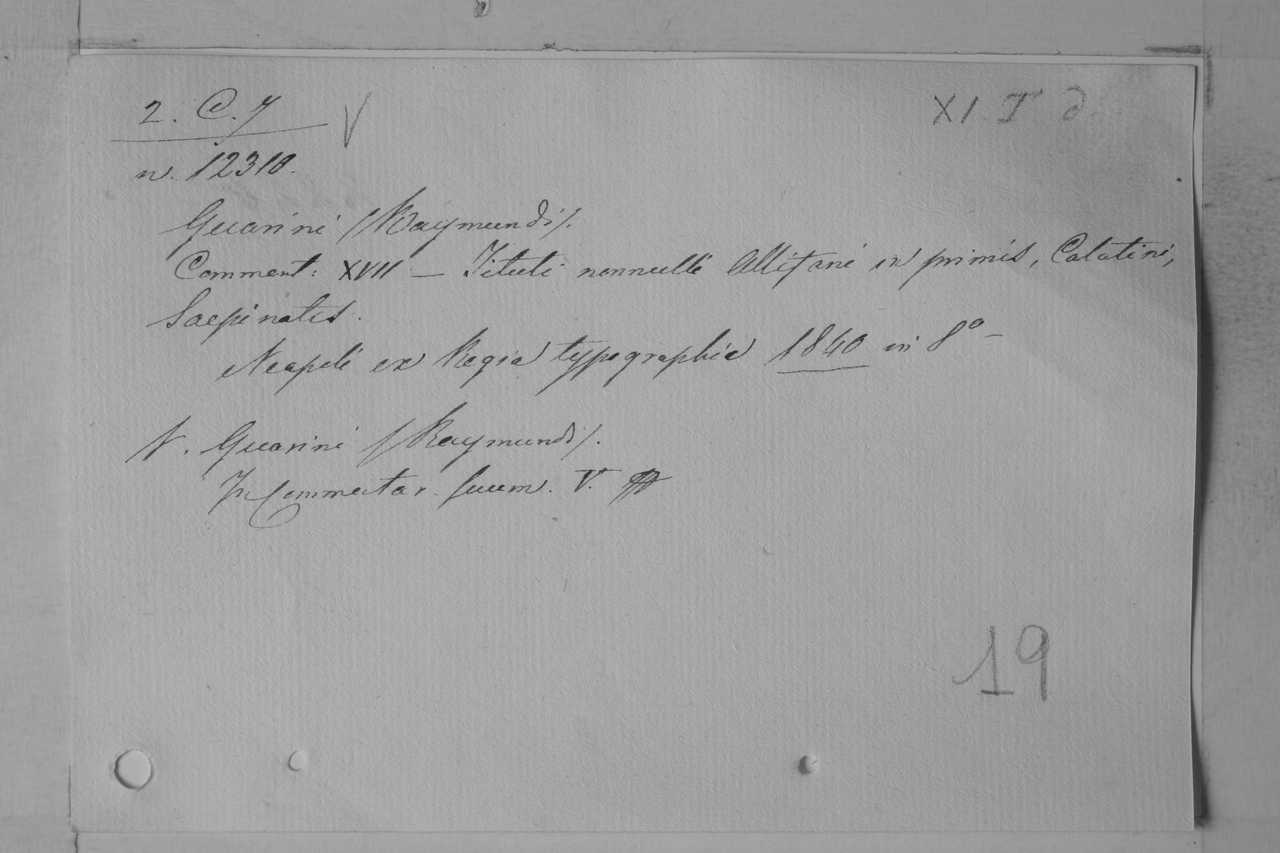 2. C. 7 V
XI. I d.
n. 12310.
Guarini (Raymundi).
Comment: XVII — Tituli nonnulli Allifani in primis, Calatini,
Saepinates.
Neapoli ex Regia typographia 1840 in 8º —
V. Guarini (Raymundi).
In Commentar. suum. V.
19